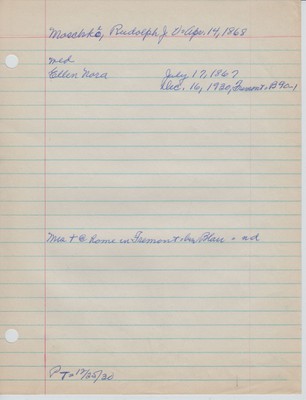 Moschkē, Rudolph J. O. Apr. 14, 1868
med
Ellen Nora July 17, 1867
Dec. 16, 1920, Fremont, B90-1
Mrs + home in Fremont nd
P To 12/25/20